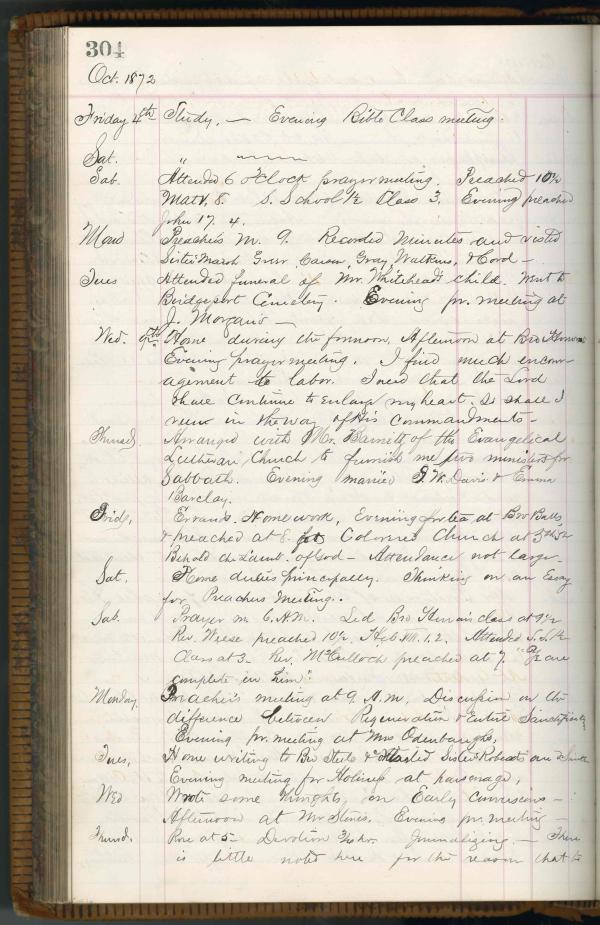 304
Oct. 1872
Friday 4th Study, — Evening Bible Class meeting.
Sat. "
Sab. Attended 6 o'Clock prayer meeting. Preached 10½
Matt. 8. S. School 1½ Class 3. Evening preached
John 17. 4.
Mond Preachers M. 9. Recorded minutes and visited
Sister Marsh Greer Carson, Gray, Watkins, & Cord —
Tues Attended funeral of Mr. Whitehead's child. Went to
Bridgeport Cemetery. Evening pr. meeting at
J. Morgan's —
Wed. 9th Home during the forenoon, Afternoon at Bro
Evening prayer meeting. I find much encour-
agement to labor. I need that the Lord
shall continue to enlarge my heart. So shall I
run in the way of His Commandments —
Thursd. Arranged with Mr. Barnett of the Evangelical
Lutheran Church to furnish me two ministers for
Sabbath. Evening married J. W. Davis & Emma
Barclay.
Frid, Errands. Home work, Evening for tea at Bro Balls
& preached at 8. Colored Church at 5th St
Behold the Lamb of God — Attendance not large —
Sat. Home duties principally. Thinking on an Essay
for Preachers Meeting.
Sab. Prayer m. 6 A.M. Led Bro class at 9½
Rev. Weese preached 10½. Heb VIII. 1.2. Attended S.S. &
Class at 3. Rev. McCulloch preached at 7. "Ye are
complete in him".
Monday. Preacher's meeting at 9. A.M. Discussion on the
difference between Regeneration & Entire Sanctification
Evening pr. meeting at Mrs Odenbaughs,
Tues, Home writing to Bro Steele & visited Sister Roberts
Evening meeting for Holiness at parsonage,
Wed Wrote some thoughts on Early Conversions —
Afternoon at Mr Stones. Evening pr. meeting —
Thursd. Rose at 5 — Devotion Journalizing. — There
is little noted here for the reason that is